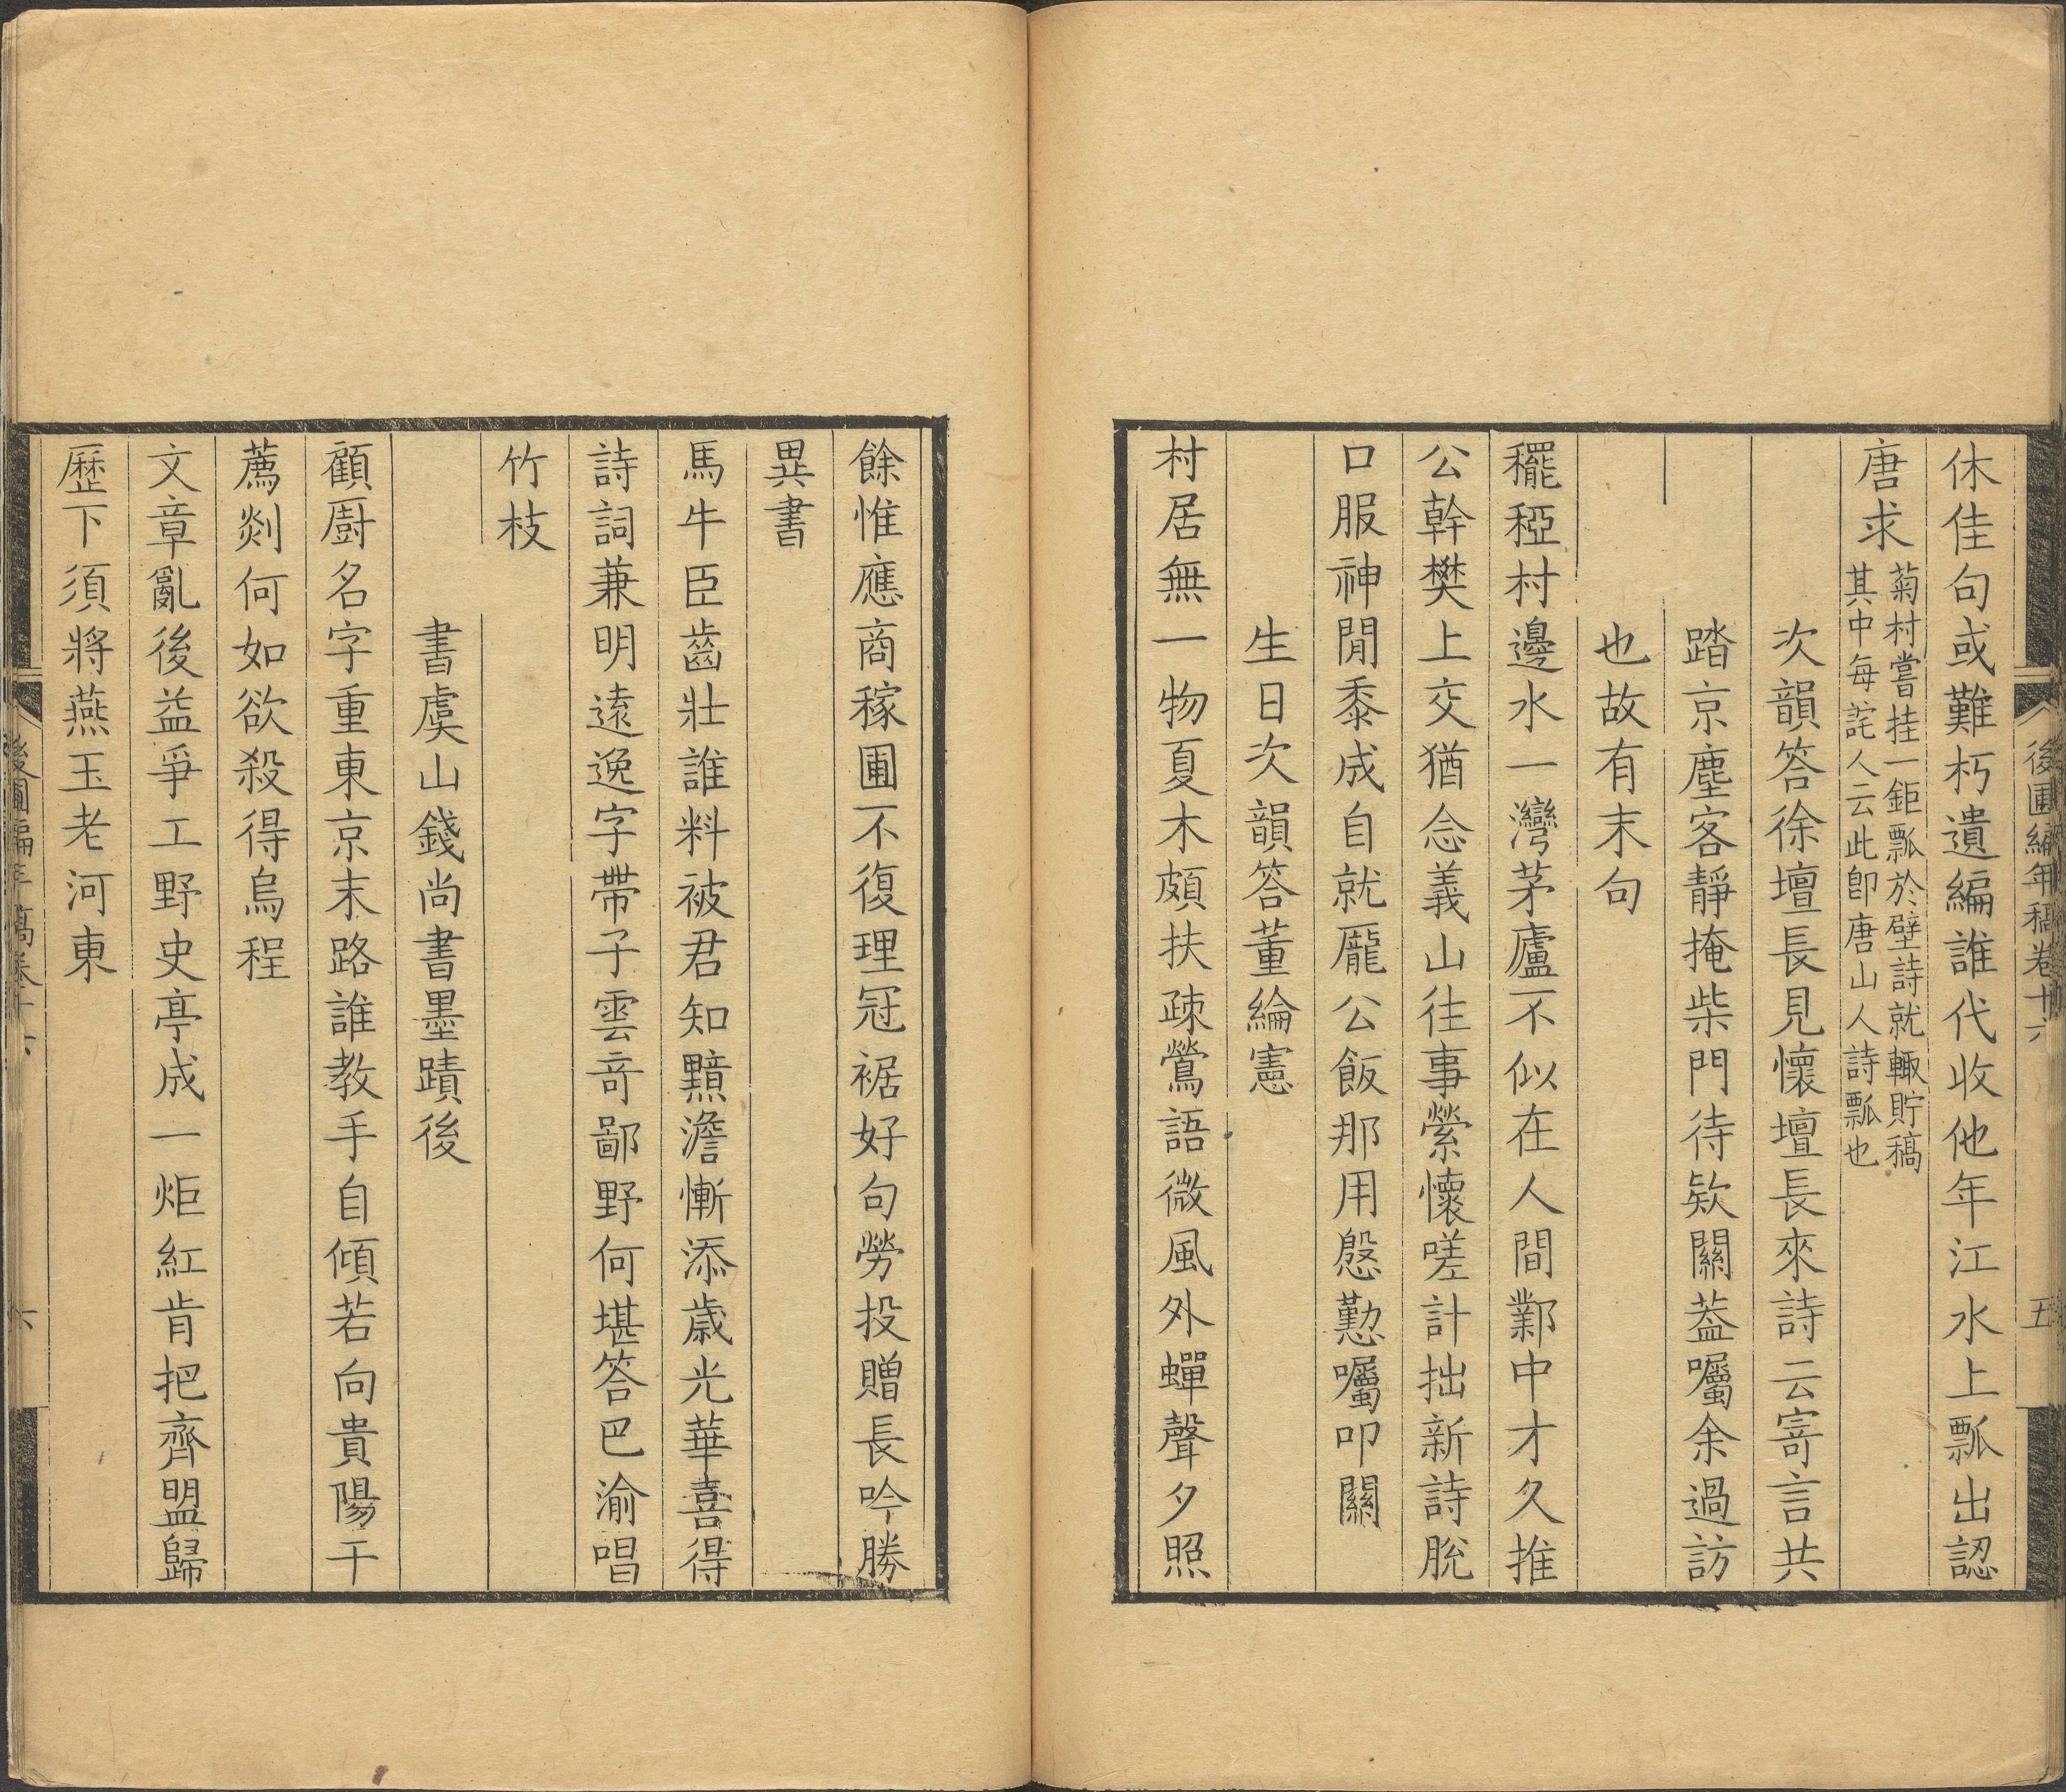 後圃編年稿卷十六
五
休佳句或難朽遺編誰代收他年江水上瓢出認
唐求
菊村嘗挂一鉅瓢於壁詩就輙貯稿
其中每詫人云此即唐山人詩瓢也
次韻答徐壇長見懷壇長來詩云寄言共
踏京塵客靜掩柴門待欵關葢囑余過訪
也故有末句
䆉稏村邊水一灣茅廬不似在人間鄴中才久推
公幹樊上交猶念義山往事縈懷嗟計拙新詩脫
口服神閒黍成自就龐公飯那用慇懃囑叩關
生日次韻答董綸憲
村居無一物夏木頗扶疎鶯語微風外蟬聲夕照
餘惟應商稼圃不復理冠裾好句勞投贈長吟勝
異書
馬牛臣齒壯誰料被君知黯澹慚添歲光華喜得
詩詞兼明遠逸字帶子雲奇鄙野何堪答巴渝唱
竹枝
書虞山錢尚書墨蹟後
顧厨名字重東京末路誰教手自傾若向貴陽干
薦剡何如欲殺得烏程
文章亂後益爭工野史亭成一炬紅肯把齊盟歸
歷下須將燕玉老河東
後圃編年稿卷十六
六